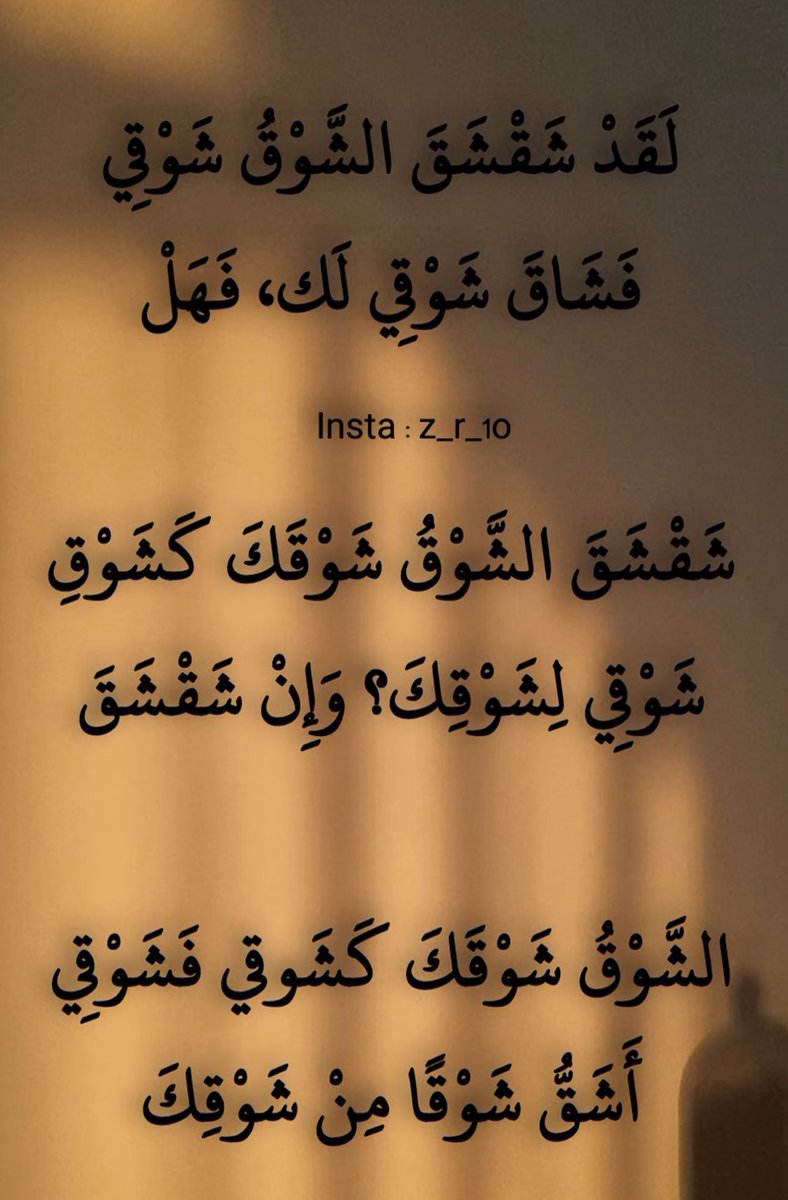 لَقَدْ شَقْشَقَ الشَّوْقُ شَوْقِي
فَشَاقَ شَوْقِي لَك، فَهَلْ
Insta : z_r_10
شَقْشَقَ الشَّوْقُ شَوْقَكَ كَشَوْقِ
شَوْقِي لِشَوْقِكَ؟ وَإِنْ شَقْشَقَ
الشَّوْقُ شَوْقَكَ كَشَوقي فَشَوْقِي
أَشَقُّ شَوْقًا مِنْ شَوْقِكَ